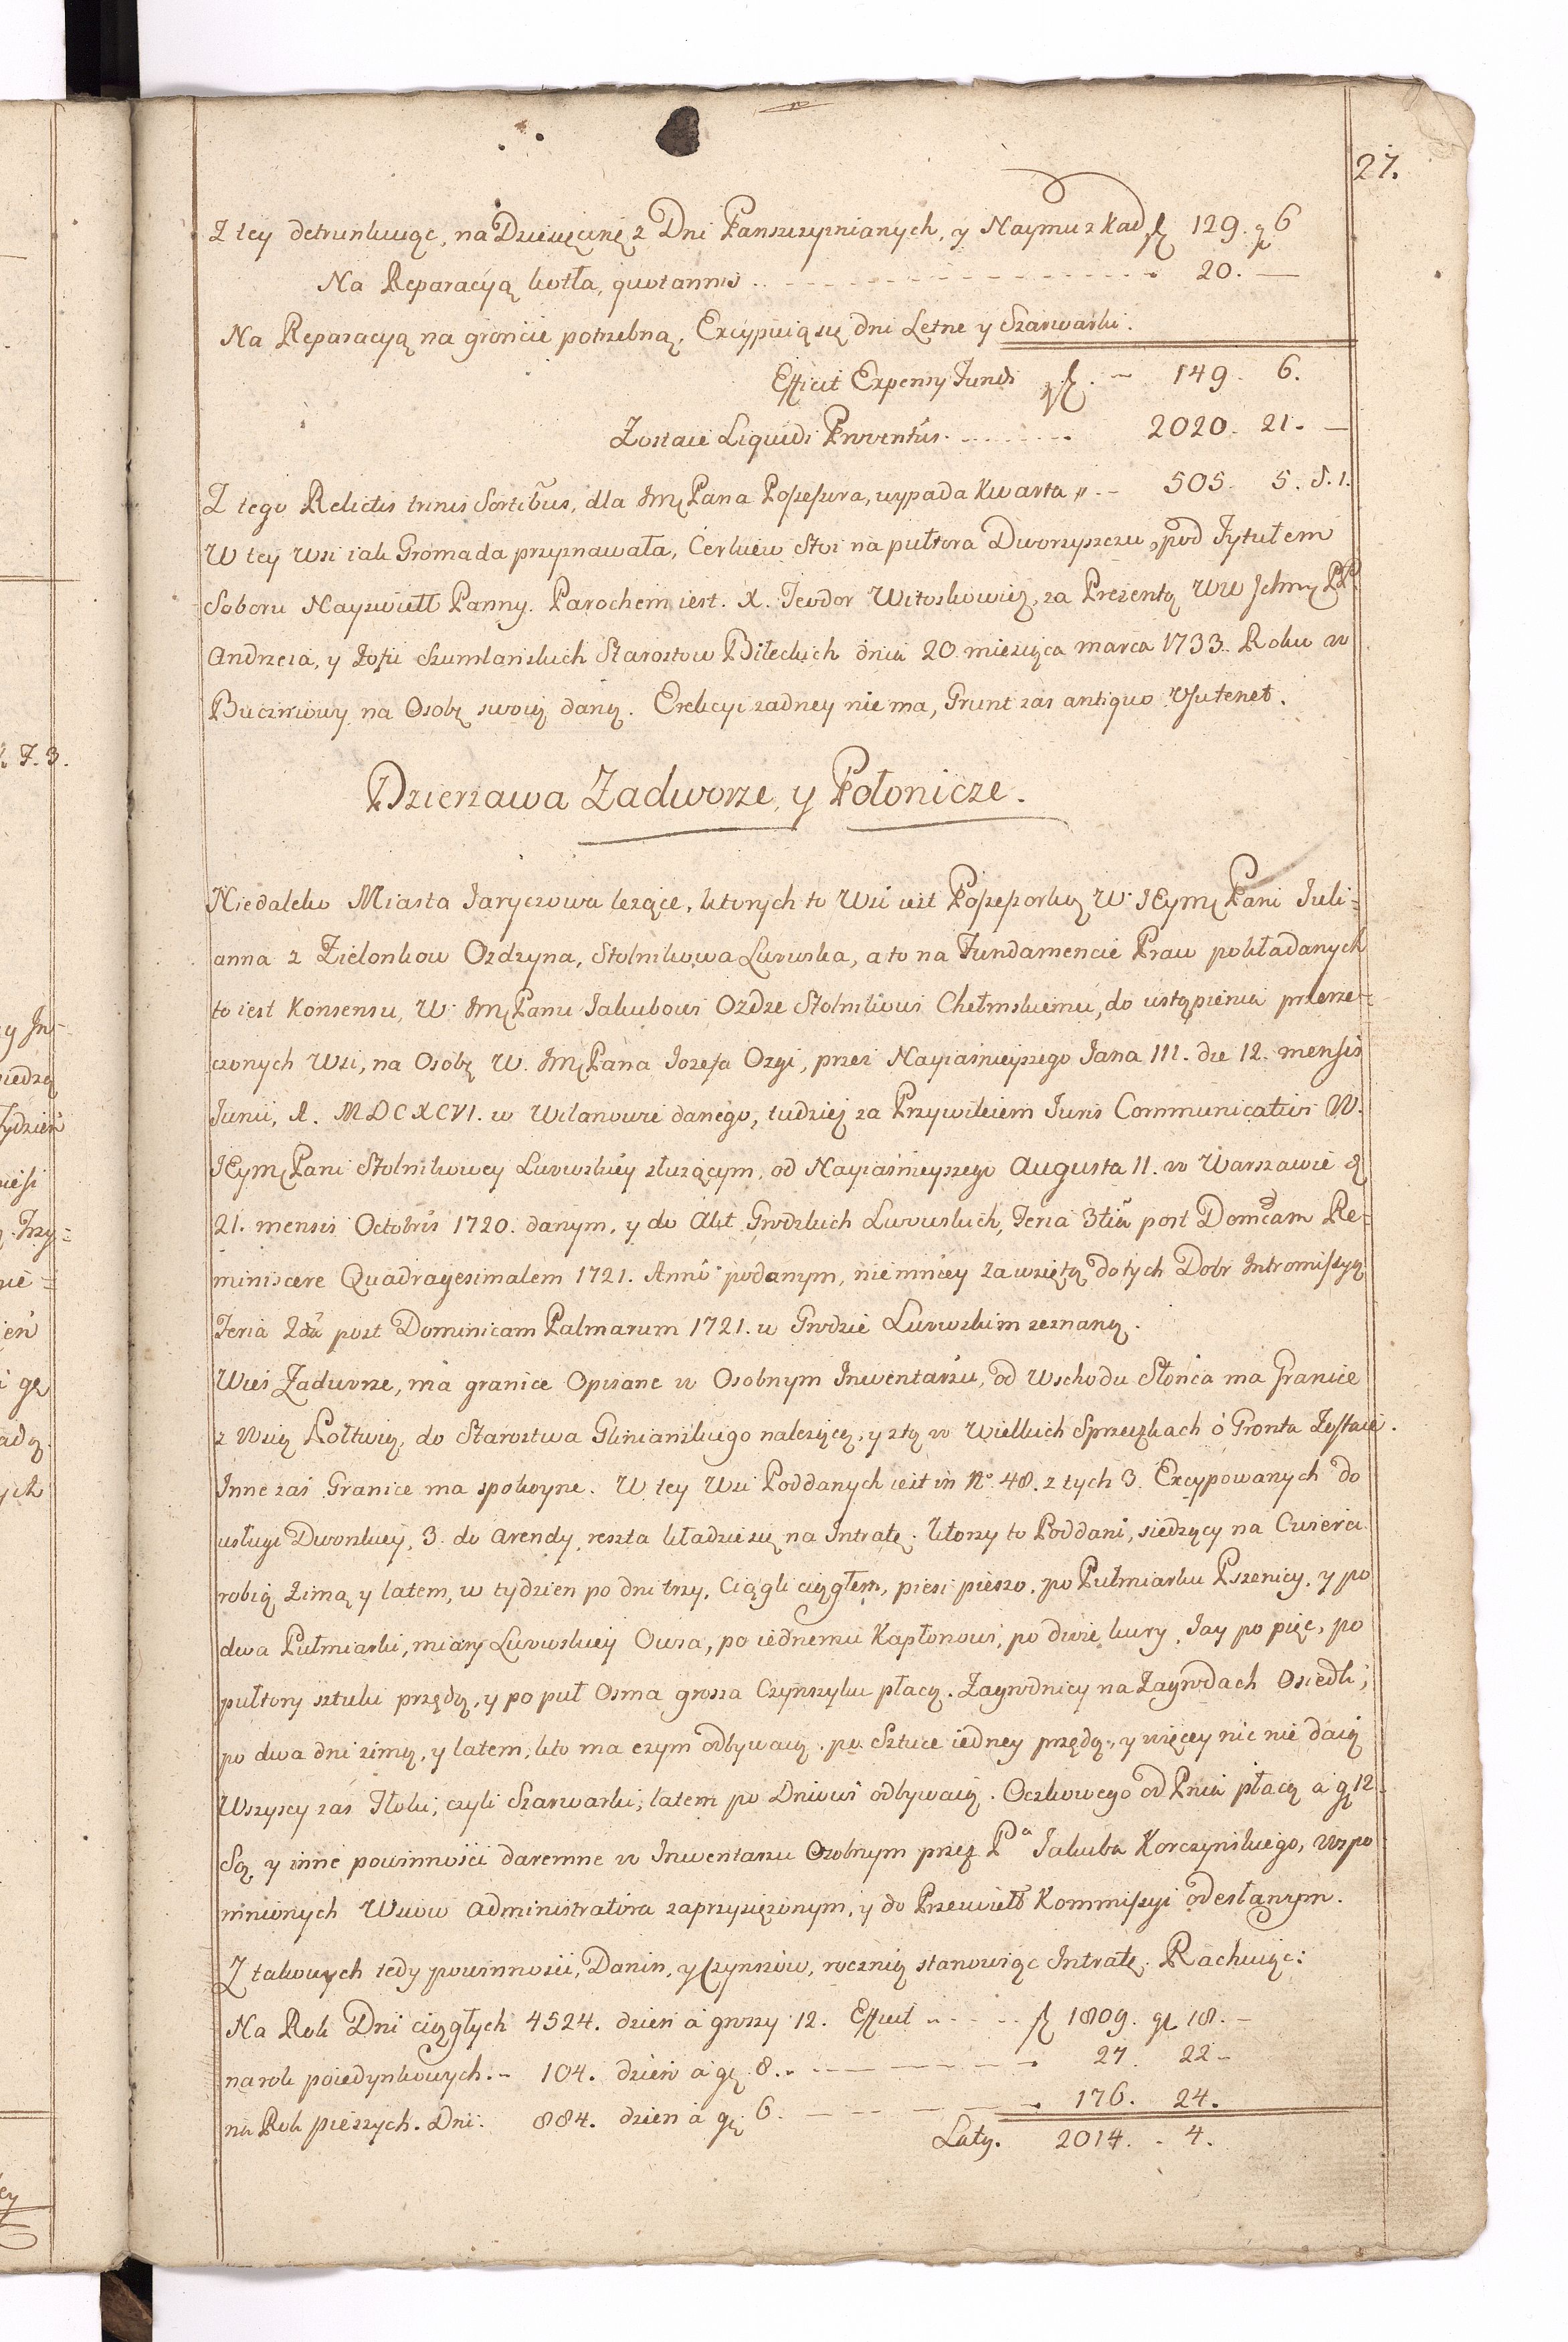 27.
Z tey detrunkuiąc, na Dziesięcinę z Dni Panszczyznianych, y Naymu z Kad fl 129. gr 6
Na Reparacyą kotła, quotannis . . - - - - - 20. —
Na Reparacyą na groncie potrzebną, Excypuią się dni Letne y Szarwarki.
Efficit Expensy Fundi fl. — 149. 6.
Zostaie Liquidi Proventus. . . . . . . 2020. 21. —
Z tego Relictis trinis Sortibus, dla Jmę Pana Possessora, wypada Kwarta „ . - 505. 5. S. 1.
W tey Wsi iak Gromada przyznawała, Cerkiew Stoi na pułtora Dworzyszczu, pod Tytułem
Soboru Nayswiętt Panny. Parochem iest. X. Teodor Witoszkowicz, za Prezentą WW Jchmę PP
Andrzeia, y Zofii Szumlanskich Starostow Biłeckich dnia 20 miesiąca marca 1733. Roku w
na Osobę swoię daną. Erekcyi zadney nie ma, Grunt zas antiquo Usu tenet.
Dzierzawa Zadworze, y Połonicze.
Niedaleko Miasta Jaryczowa lezące, ktorych to Wsi iest Possessorką W. JEymę Pani Juli=
anna z Zielonkow Ozdzyna, Stolnikowa Lwowska, a to na Fundamencie Praw pokładanych
to iest Konsensu, W. Jmę Panu Jakubowi Ozdze Stolnikowi Chełmskiemu, do ustąpienia przerze=
czonych Wsi, na Osobę W. Jmę Pana Jozefa Ozgi, przez Nayiasnieyszego Jana III. die 12. mensis
Junii, A. MDCXCVI. w Wilanowie danego, tudziesz za Przywileiem Juris Communicativi W.
JEymę Pani Stolnikowey Lwowskiey słuzącym, od Nayiasnieyszego Augusta II. w Warszawie d
21. mensis Octobris 1720. danym, y do Akt Grodzkich Lwowskich, Feria 3tia post Domcam Re=
miniscere Quadragesimalem 1721. Anno podanym, niemniey za wziętą do tych Dobr Intromissyą
Feria 2da post Dominicam Palmarum 1721. w Grodzie Lwowskim zeznaną.
Wies Zadworze, ma granice Opisane w Osobnym Inwentarzu, od Wschodu Słonca ma Granice
z Wsią Połtwią, do Starostwa Glinianskiego nalezącą, y ztą w Wielkich Sprzeczkach o Gronta Zostaie.
Inne zas Granice ma spokoyne. W tey Wsi Poddanych iest in No. 48. z tych 3. Excypowanych do
usługi Dworskiey, 3. do Arendy, reszta kładzie się na Intratę. ktorzy to Poddani, siedzący na Cwierci
robią Zimą y latem, w tydzien po dni trzy, Ciągli ciągłem, piesi pieszo, po Pułmiarku Pszenicy, y po
dwa Pułmiarki, miary Lwowskiey Owsa, po iednemu Kapłonowi, po dwie kury, Jay po pięc, po
pułtory sztuki przędą, y po puł Osma grosza Czynszyku płacą. Zagrodnicy na Zagrodach Osiedli;
po dwa dni zimą, y latem, kto ma czym odbywaią. po Sztuce iedney przędą, y więcey nic nie daią
Wszyscy zas Tłoki, czyli Szarwarki, latem po Dniowi odbywaią. Oczkowego od Pnia płacą a gr 12.
Są y inne powinnosci daremne w Inwentarzu Osobnym przez Pa Jakuba Korczynskiego, wspo
mnionych Wsiow Administratora zaprzysięzonym, y do Przeswiett Kommissyi odesłanym.
Z takowych tedy powinnosci, Danin, y Czynszow, roczną stanowiąc Intratę. Rachuiąc:
Na Rok Dni ciągłych 4524. dzien a groszy 12. Efficit . . - - . . fl 1809. gr 18. -
na rok poiedynkowych. - 104. dzien a gr 8. . - - - - - 27. 22 -
na Rok pieszych. Dni. 884. dzien a gr 6. - - - - - 176. 24.
Laty. 2014. - 4.